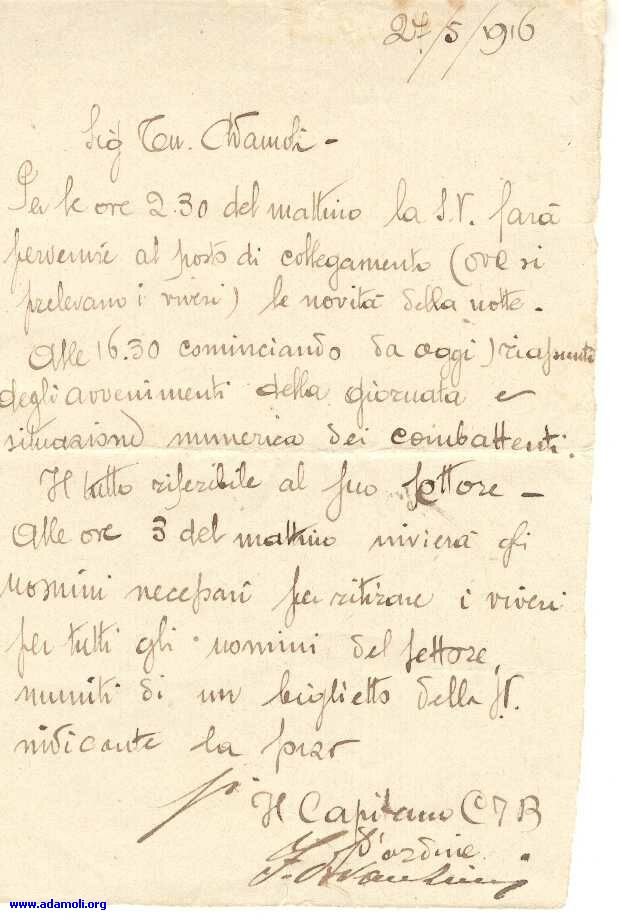 27/5/1916
Sig Ten. Adamoli -
Per le ore 2.30 del mattino la S.V. farà
pervenire al posto di collegamento (ove si
prelevano i viveri) le novità della notte.
Alle 16.30 cominciando da oggi) riassunto
degli avvenimenti della giornata e
situazione numerica dei combattenti.
Il tutto riferibile al suo settore -
Alle ore 3 del mattino invierà gli
uomini necessari per ritirare i viveri
per tutti gli uomini del settore,
muniti di un biglietto della S.V.
indicante la forza
Il Capitano C 7 B
d'ordine
www.adamoli.org